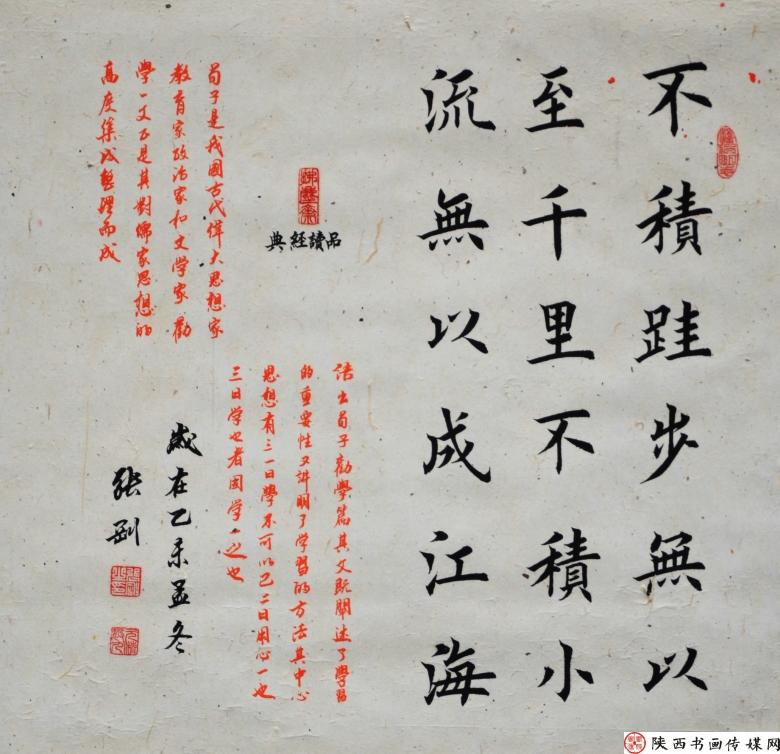 不積跬步無以
至千里不積小
流無以成江海
品讀經典
語出荀子勸學篇其文既闡述了學習
的重要性又讲明了学習的方法其中心
思想有三一曰學不可以已二曰用心一也
三曰学也者固学一之也
荀子是我國古代偉大思想家
教育家政治家和文学家勸
學一文正是其對儒家思想的
高度集成整理而成
歲在乙未孟冬
張剛
陕西书画传媒网